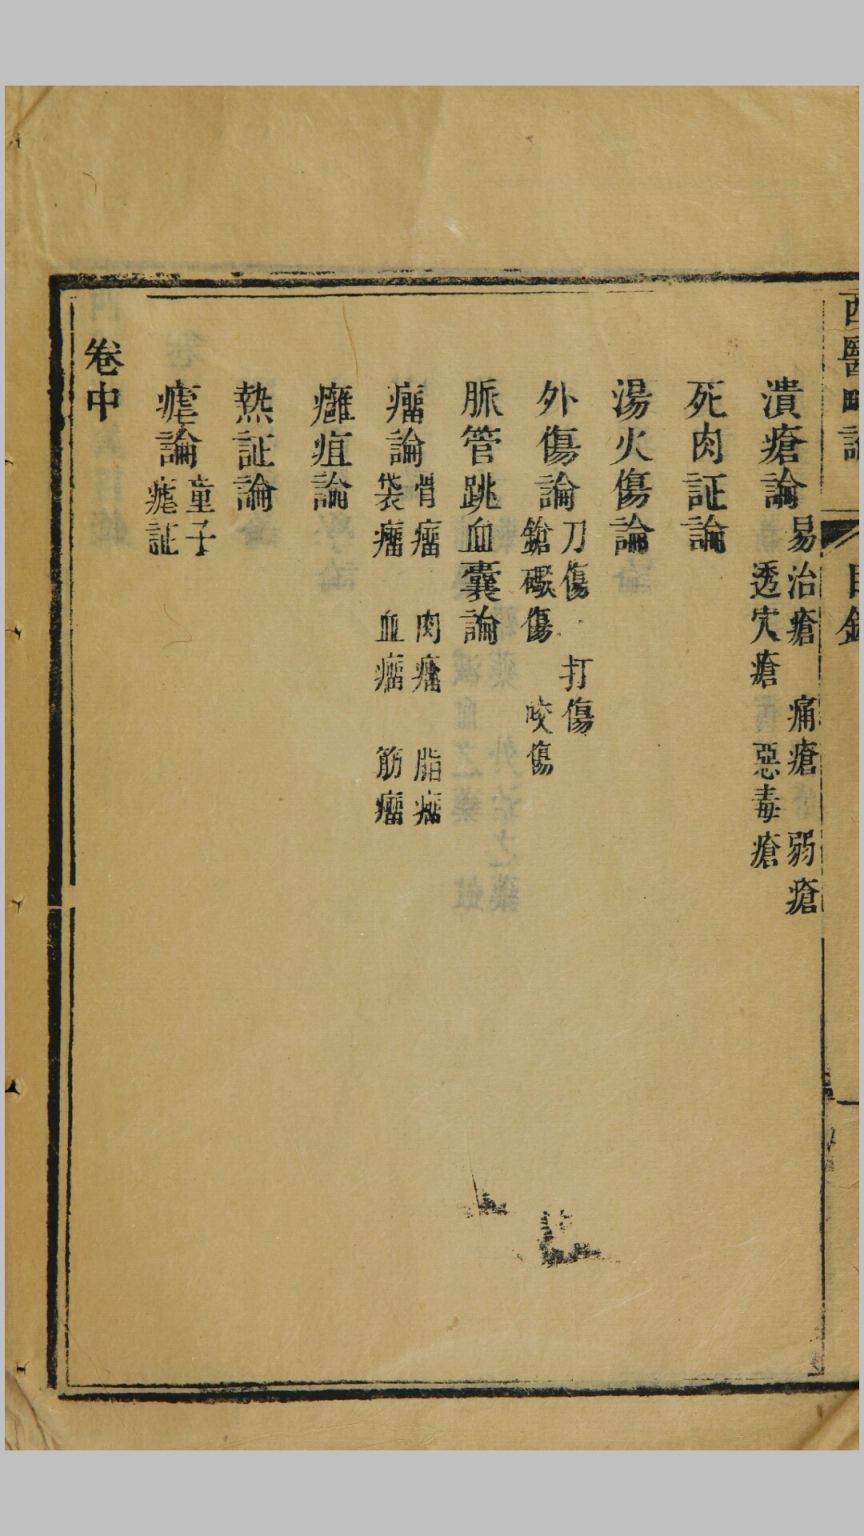 西醫略論
目錄
潰瘡論 易治瘡 痛瘡 弱瘡
透穴瘡 惡毒瘡
死肉証論
湯火傷論
外傷論 刀傷 打傷
鎗礮傷 咬傷
脈管跳血囊論
瘤論 骨瘤 肉瘤 脂瘤
袋瘤 血瘤 筋瘤
癰疽論
熱証論
瘧論 童子
瘧証
卷中